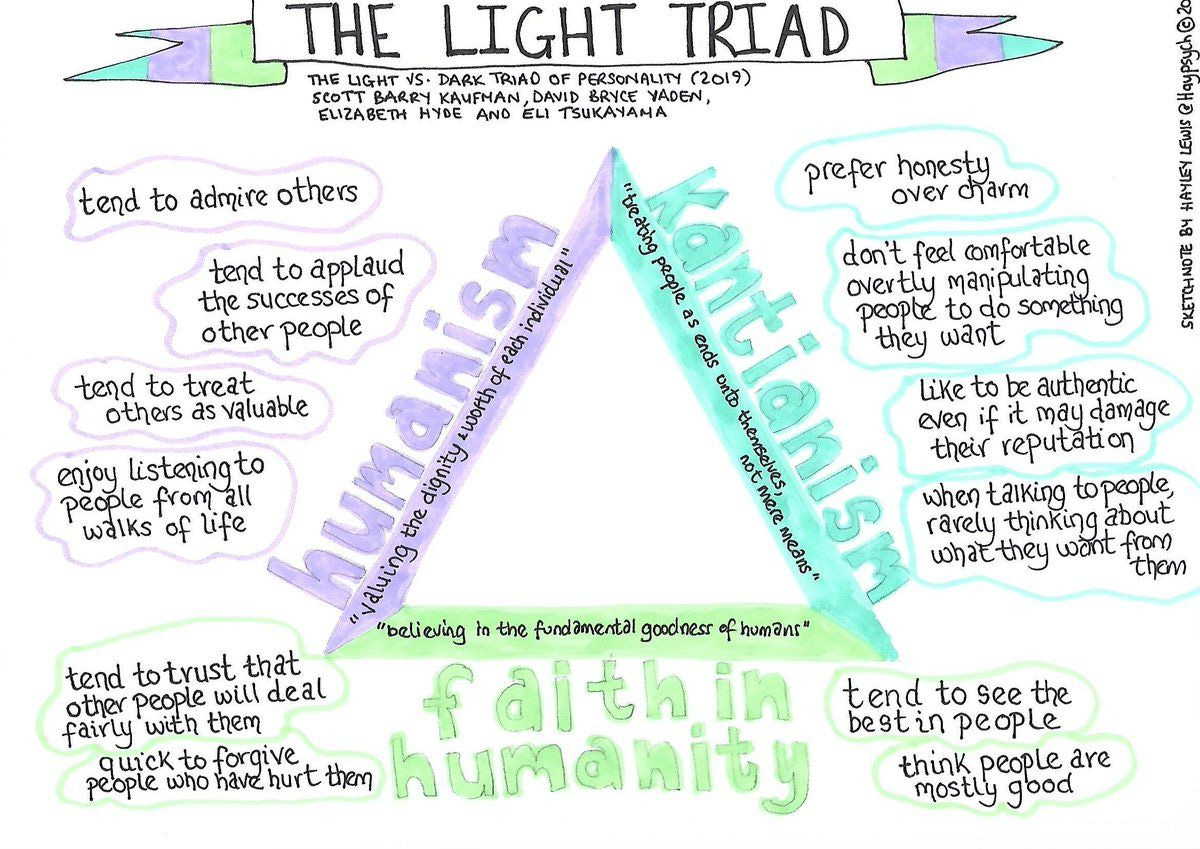 THE LIGHT TRIAD
THE LIGHT VS. DARK TRIAD OF PERSONALITY (2019)
SCOTT BARRY KAUFMAN, DAVID BRYCE YADEN,
ELIZABETH HYDE AND ELI TSUKAYAMA
SKETCHNOTE BY HAYLEY LEWIS @Haypsych © 20
tend to admire others
tend to applaud
the successes of
other people
tend to treat
others as valuable
enjoy listening to
people from all
walks of life
humanism
"valuing the dignity & worth of each individual"
kantianism
"treating people as ends unto themselves,
not mere means"
prefer honesty
over charm
don't feel comfortable
overtly manipulating
people to do something
they want
like to be authentic
even if it may damage
their reputation
when talking to people,
rarely thinking about
what they want from
them
"believing in the fundamental goodness of humans"
faith in
humanity
tend to trust that
other people will deal
fairly with them
quick to forgive
people who have hurt them
tend to see the
best in people
think people are
mostly good